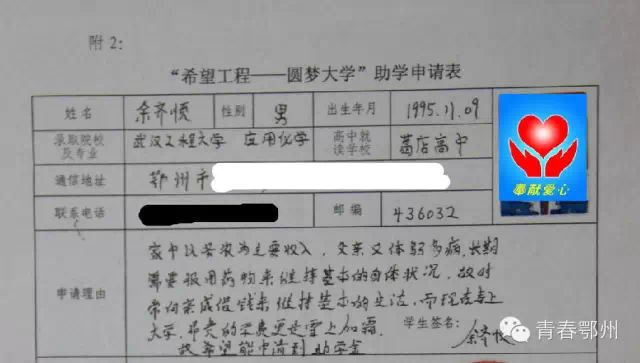 附2：
“希望工程——圆梦大学”助学申请表
姓名 余齐愎 性别 男 出生年月 1995.11.09
录取院校及专业 武汉工程大学 应用化学 高中就读学校 葛店高中
通信地址 鄂州市
联系电话 邮编 436032
奉献爱心
家中以务农为主要收入，父亲又体弱多病，长期
需要服用药物来维持基本的身体状况，故时
常向亲戚借钱来维持基本的生活，而现在考上
申请理由
大学，昂贵的学费更是雪上加霜。
我希望能申请到助学金
学生签名：余齐
青春鄂州